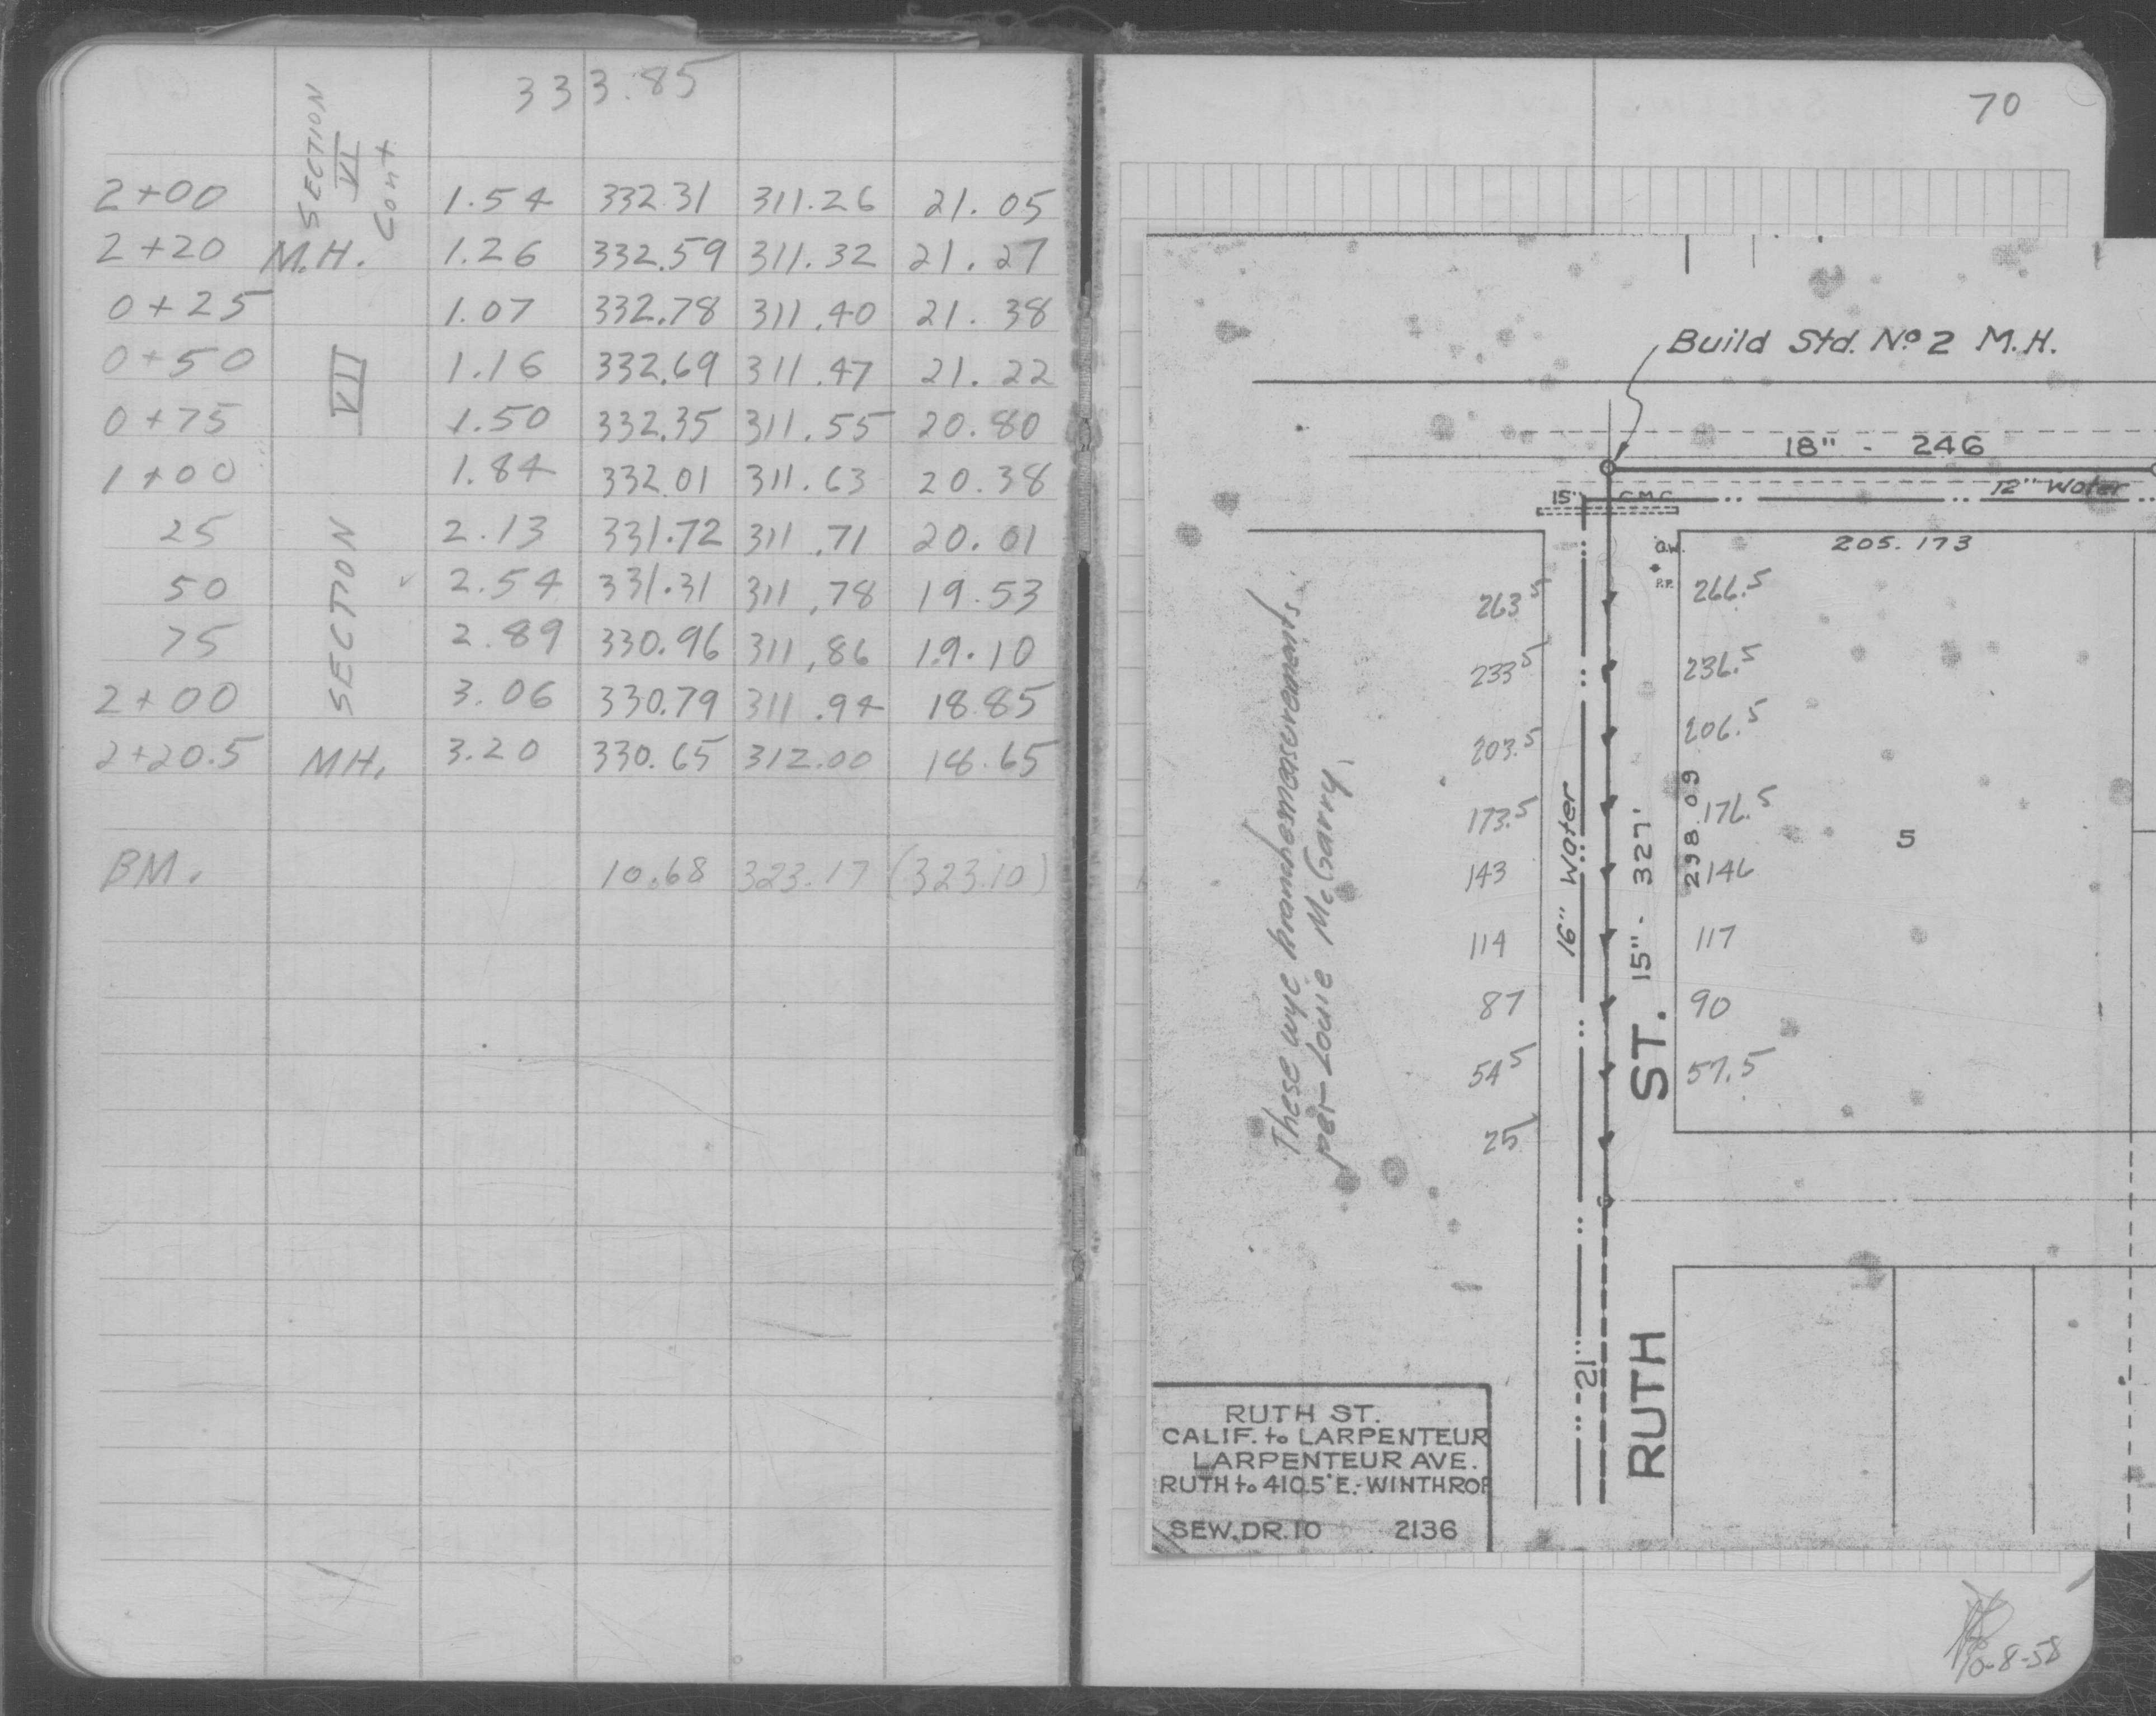 333.85
SECTION VI Cont
2+00 1.54 332.31 311.26 21.05
2+20 M.H. 1.26 332.59 311.32 21.27
0+25 1.07 332.78 311.40 21.38
0+50 1.16 332.69 311.47 21.22
0+75 1.50 332.35 311.55 20.80
1+00 1.84 332.01 311.63 20.38
25 2.13 331.72 311.71 20.01
50 2.54 331.31 311.78 19.53
75 2.89 330.96 311.86 19.10
2+00 3.06 330.79 311.94 18.85
2+20.5 MH. 3.20 330.65 312.00 18.65
SECTION VII
BM. 10.68 323.17 (323.10)
70
Build Std. No 2 M.H.
18" - 246
12" Water
15" C.M.C.
205.173
G.W.
P.P.
263.5 266.5
233.5 236.5
203.5 206.5
173.5 176.5
143 146
114 117
87 90
54.5 57.5
25
These wye branches measurements
per Louie McGarry.
16" Water
15" - 327'
298.09
5
RUTH ST.
12"
RUTH ST.
CALIF. to LARPENTEUR
LARPENTEUR AVE.
RUTH to 410.5' E.-WINTHROP
SEW. DR. 10 2136
10-8-58